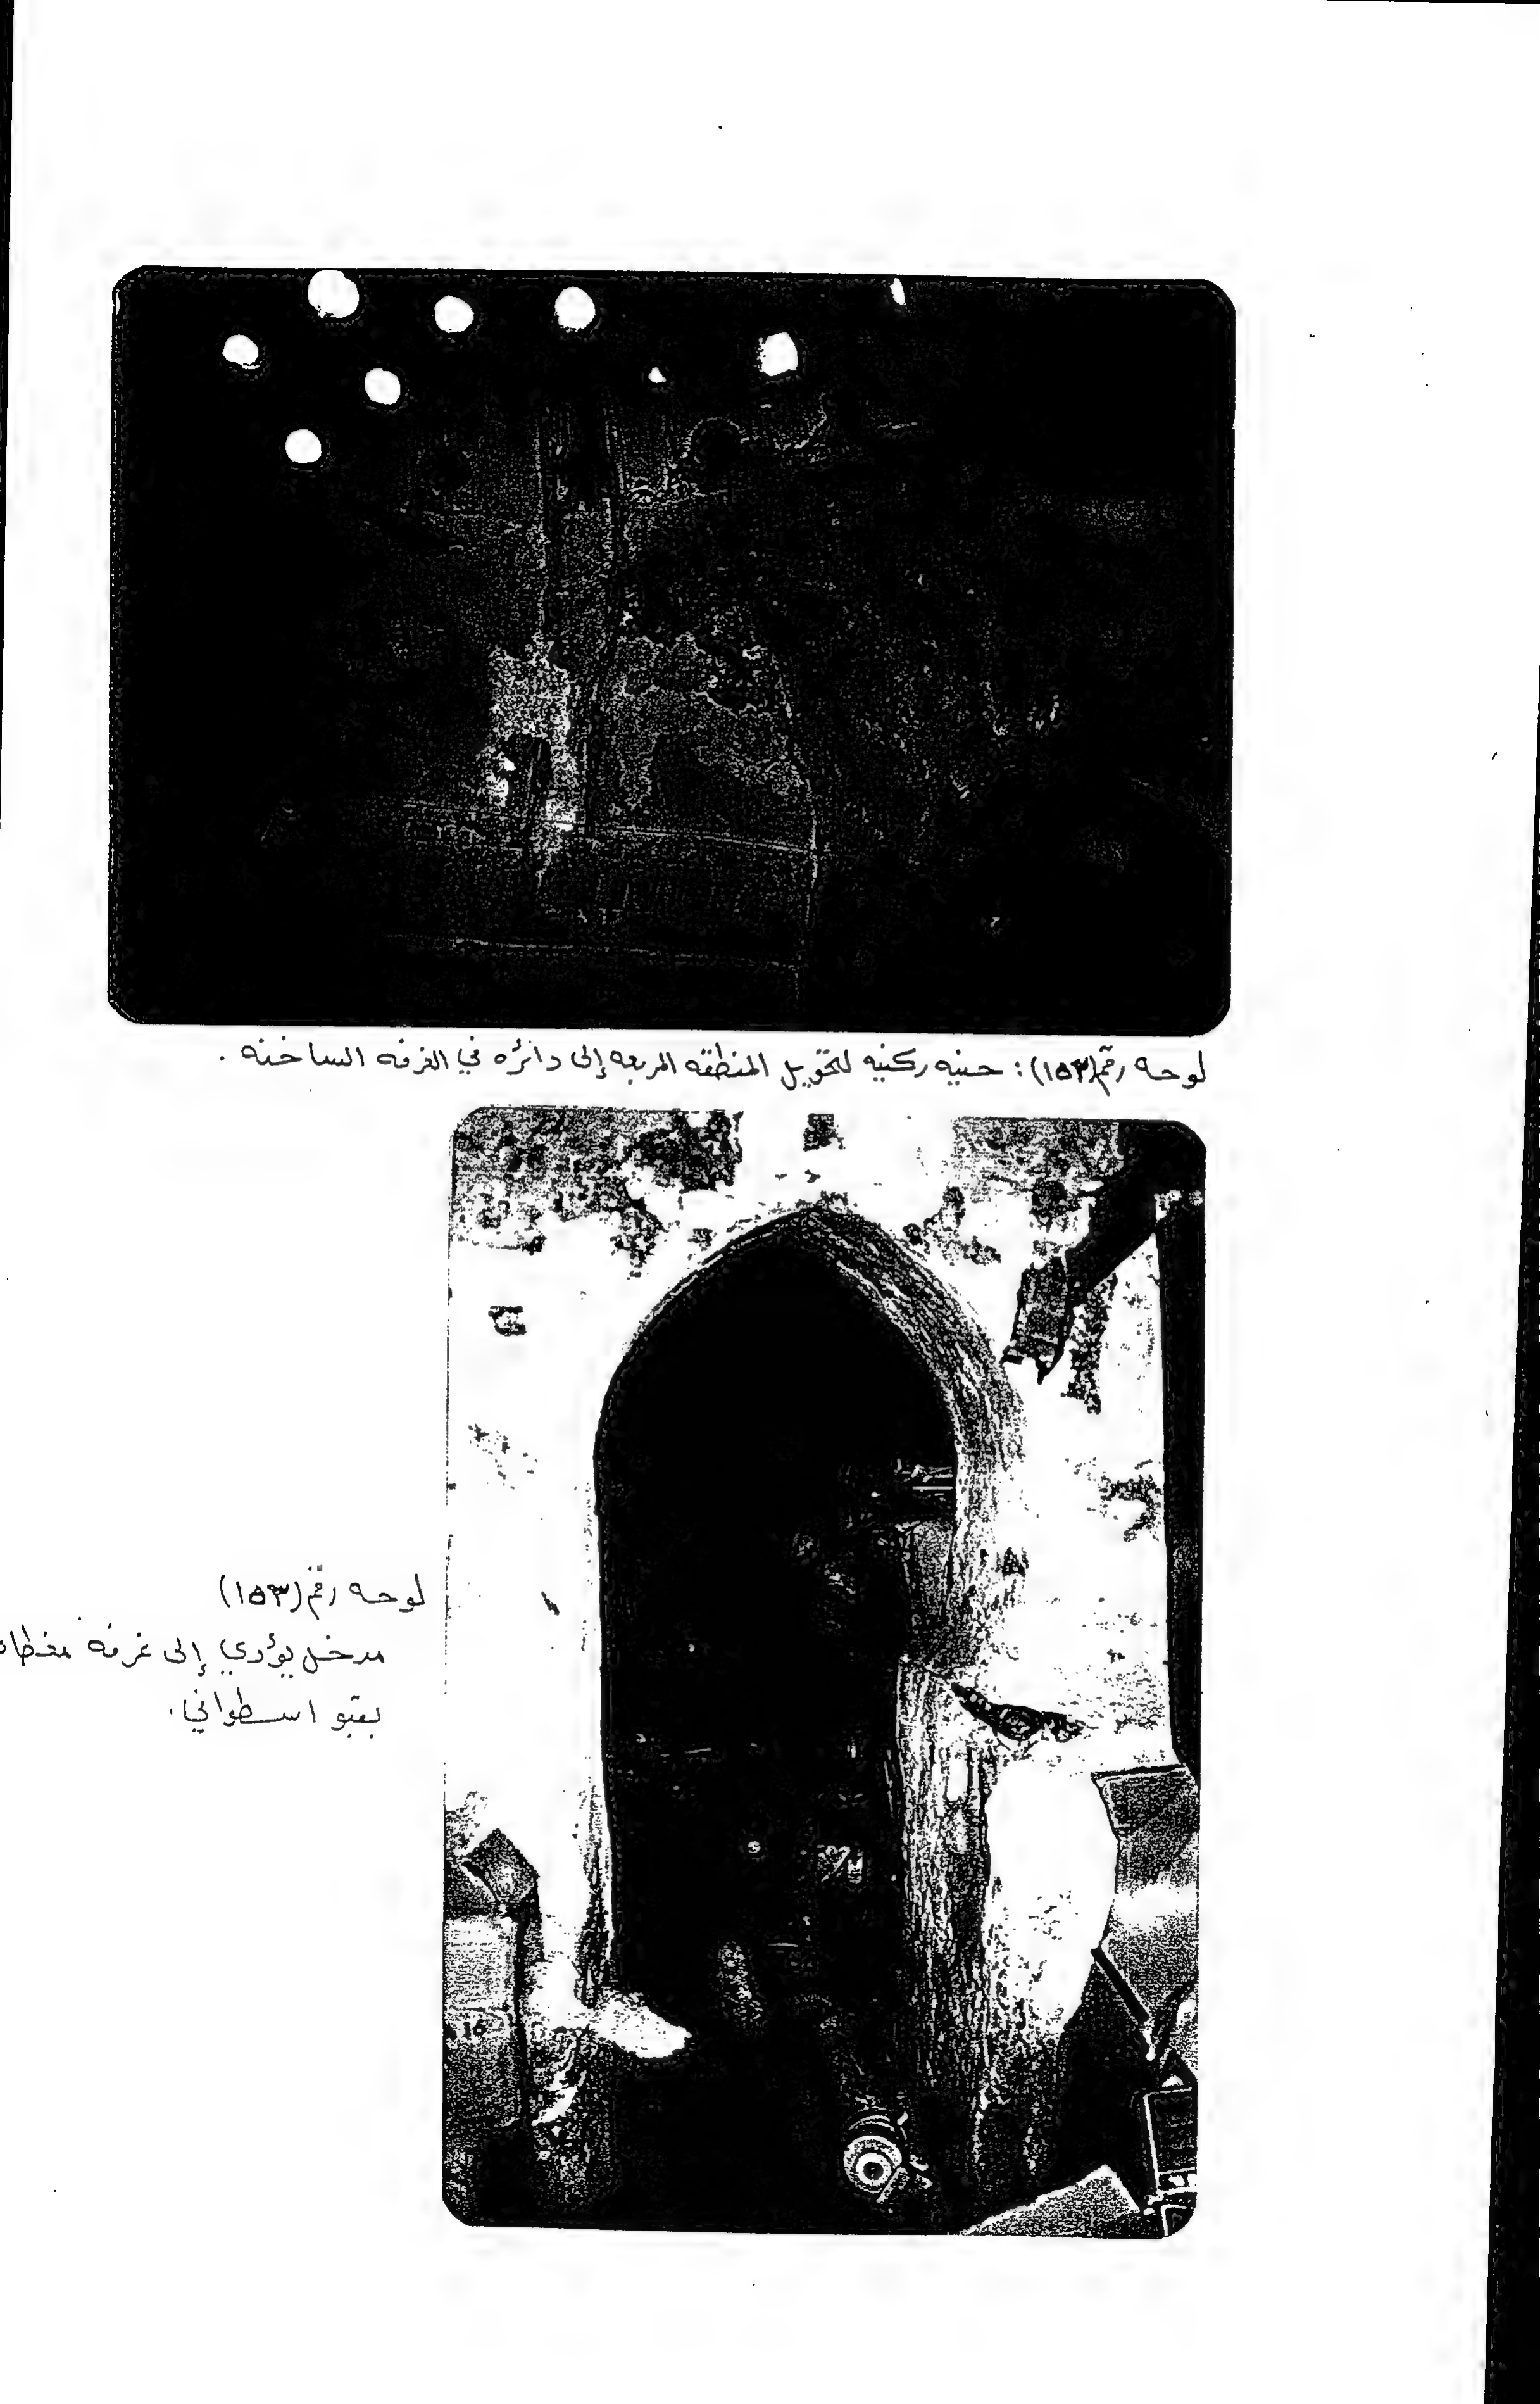 لوحه رقم (١٥٣) : حنيه ركنيه لتحويل المنطقه المربعه إلى دائره في الغرفه الساخنه .
لوحه رقم (١٥٣)
مدخل يؤدي إلى غرفه مغطاه
بقبو اسطواني .